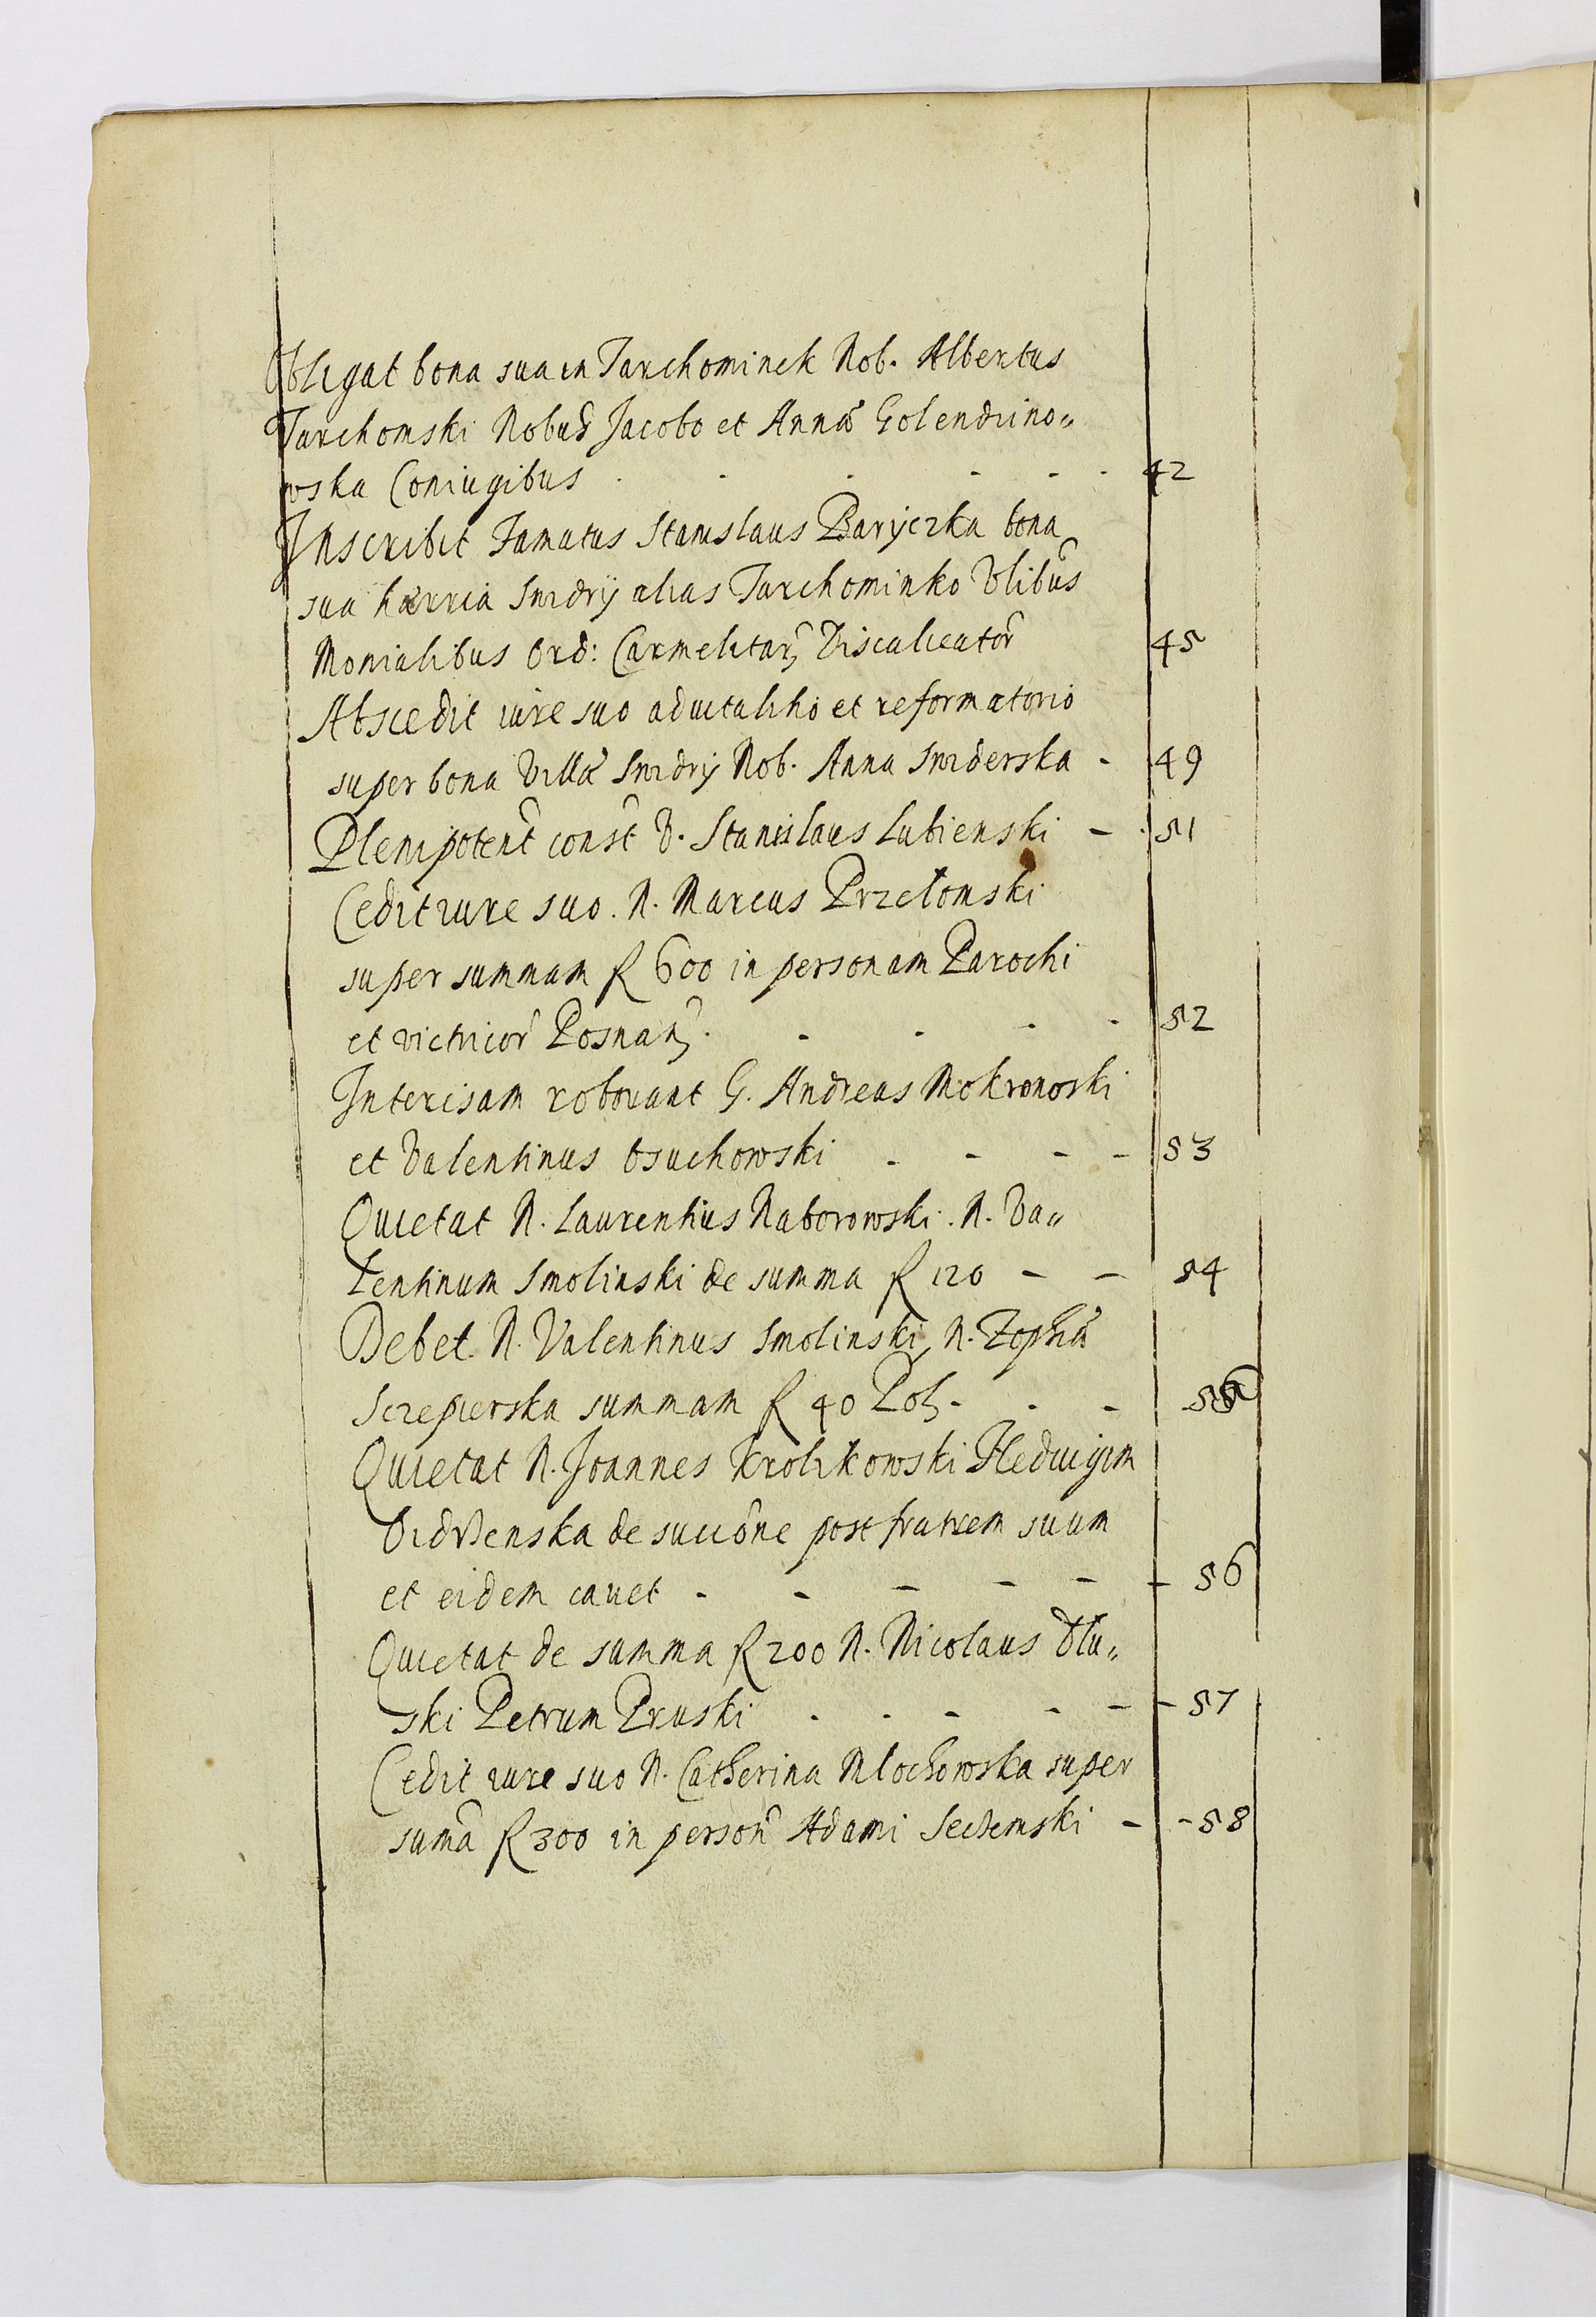 Obligat bona sua in Tarchominek Nob. Albertus
Tarchomski Nobus Jacobo et Annæ Golendzino„
wska Coniugibus . - . - - - 42
Inscribit Famatus Stanislaus Baryczka bona
sua hærria Swidry alias Tarchominko Vlibus
Monialibus Ord: Carmelitar Discalceator 45
Abscedit iure suo advitalitio et reformatorio
super bona Villæ Swidry Nob. Anna Swiderska - 49
Plenipotent const V. Stanislaus Lubienski - 51
Cedit iure suo. N. Marcus Przetomski
super summam fl 600 in personam Parochi
et victricor Posnan . - - - - 52
Intercisam roborant G. Andreas Mokronoski
et Valentinus Osuchowski - - - - 53
Quietat N. Laurentius Naborowski. N. Va„
lentinum Smolinski de summa fl 120 - - 54
Debet N. Valentinus Smolinski N. Zophiæ
Sczepierska summam fl 40 Pol - . - 55
Quietat N. Joannes Krolikowski Hedvigim
de succione post fratrem suum
et eidem cavet - - - - - - 56
Quietat de summa fl 200 N. Nicolaus Dłu„
ski Petrum Pruski . . - - - - 57
Cedit iure suo N. Catherina Mlochowska super
suma fl 300 in person Adami - - 58